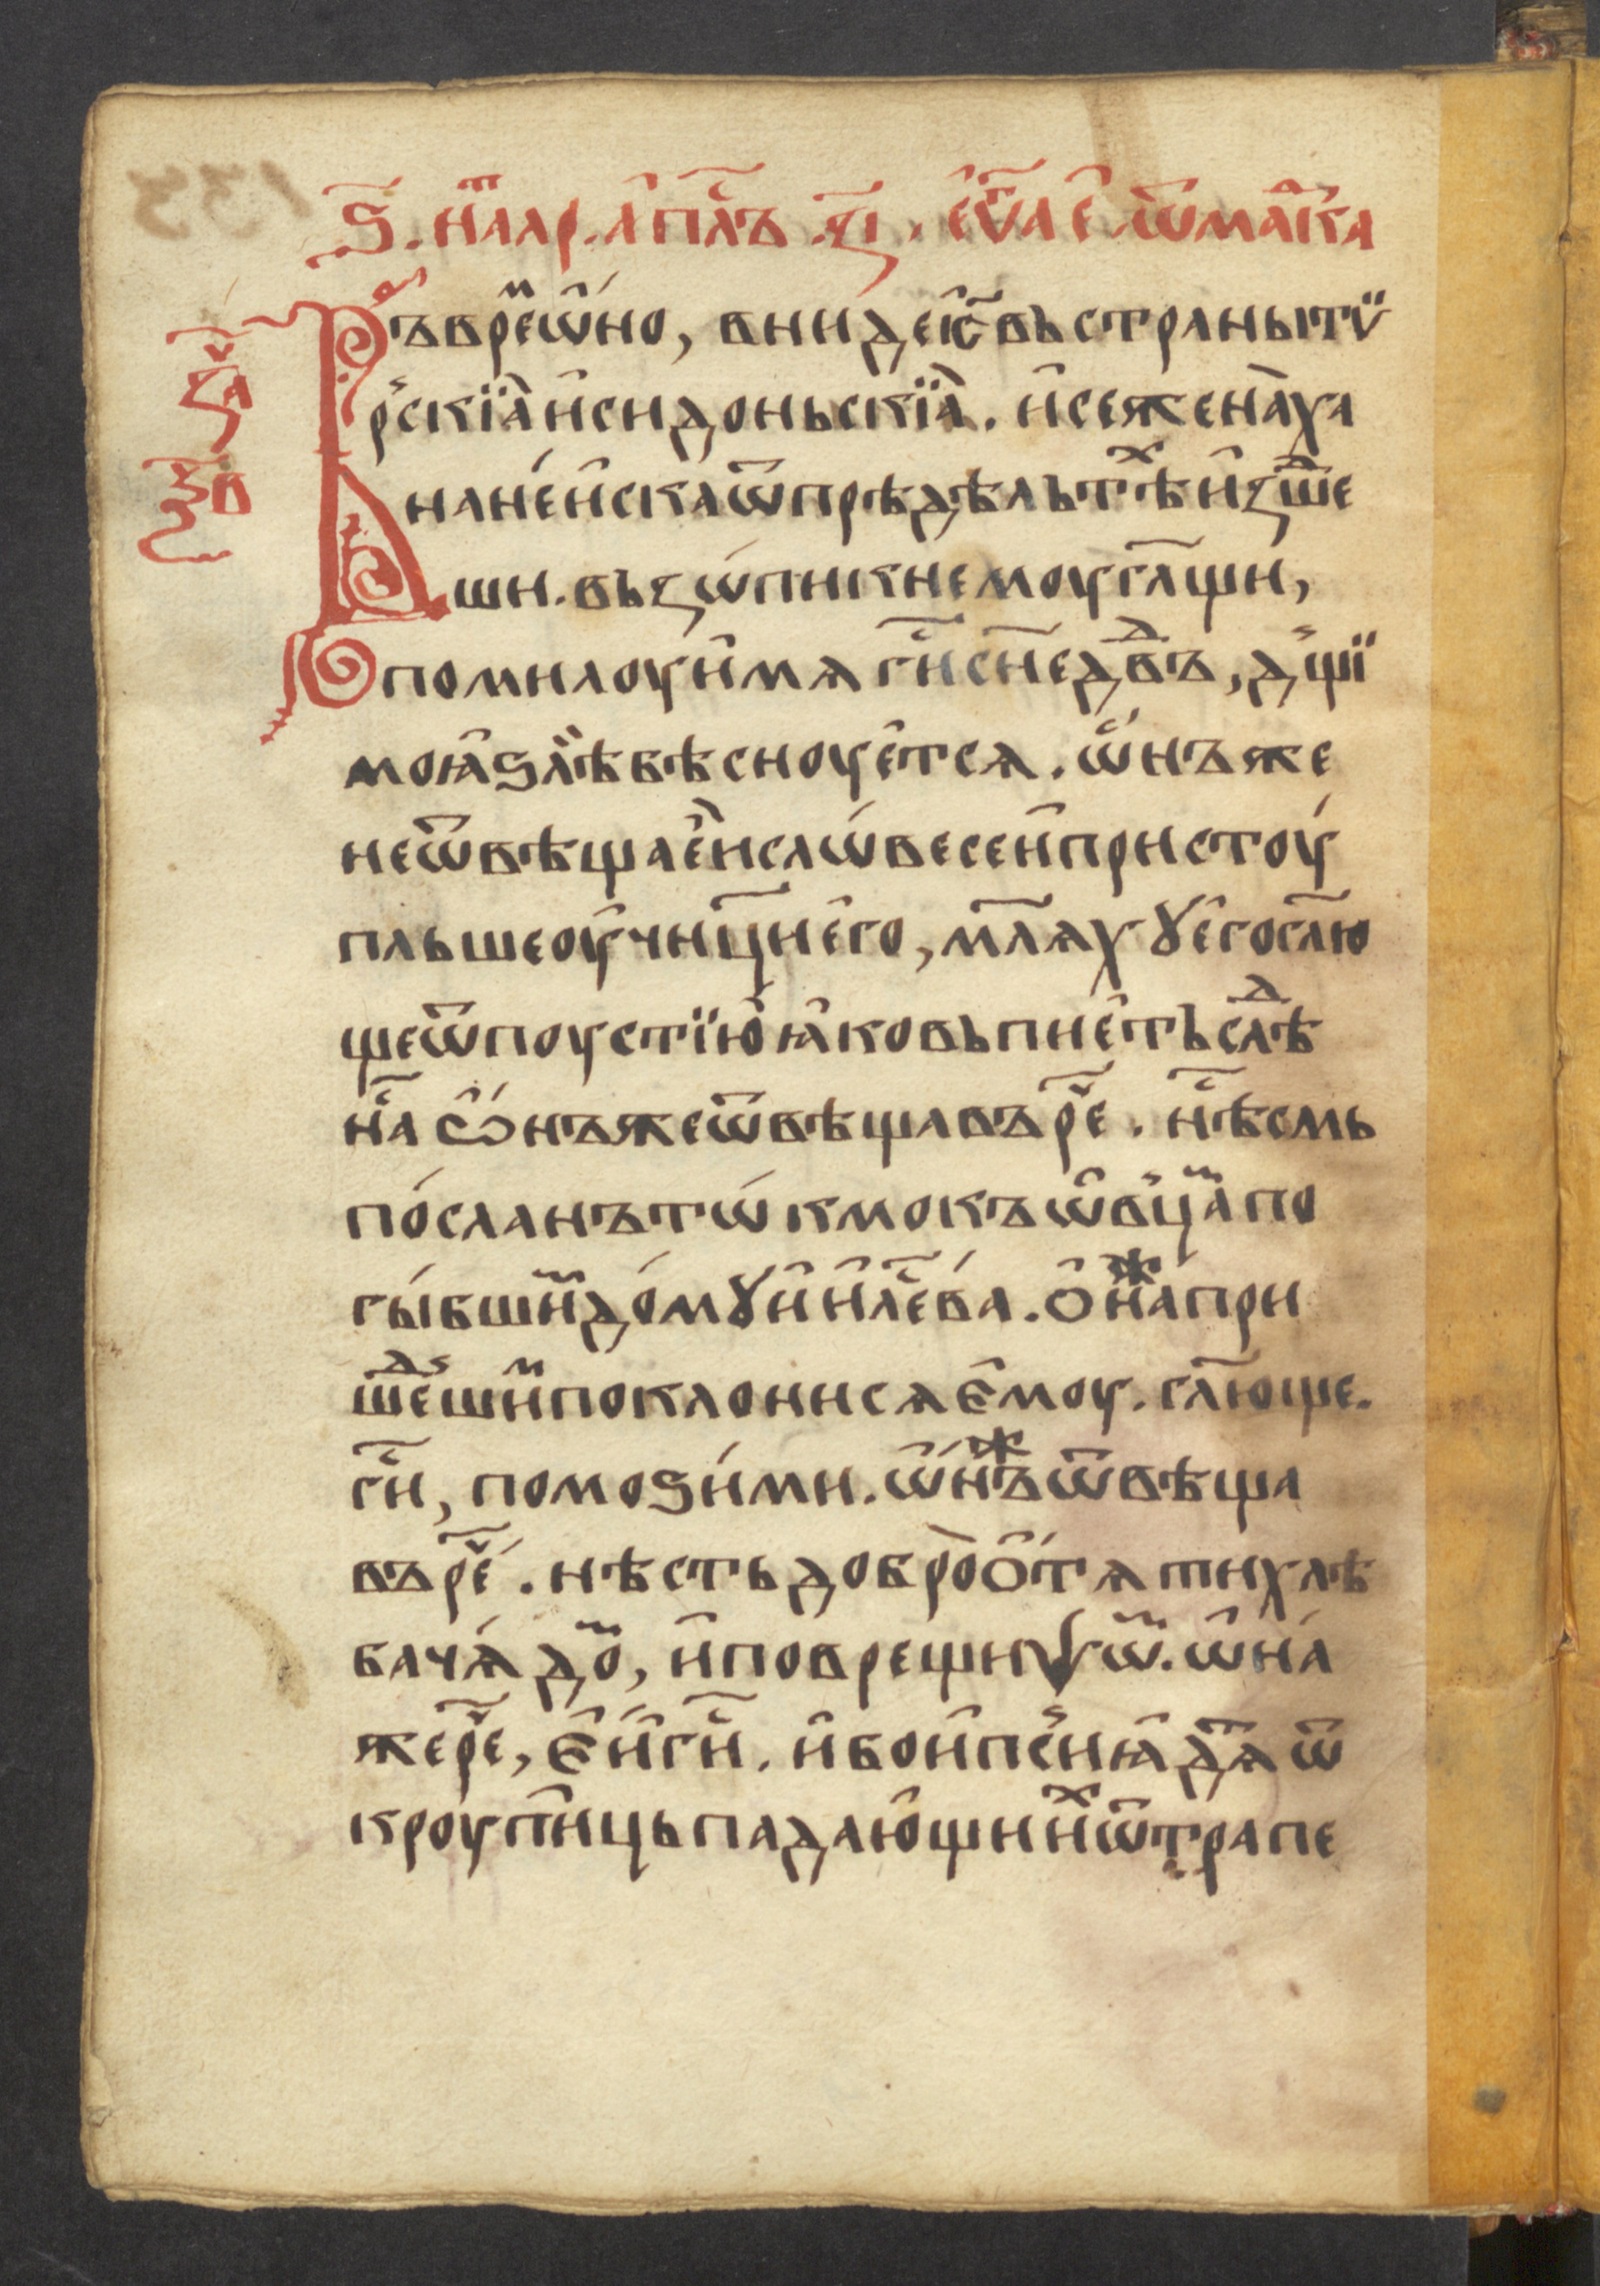 Ѕ҃. н҃алр. а҆ п҃лъ .з҃і. е҆ѵ҃а е҆ ѿма҆ка
Въ врⷨе ѡ҆но, вниде і҆с҃ въ страны тѵ
рⷭскїѧ и҆ сидоньскїѧ. и҆ се жена ха
нане́и҆ска ѿ прѣдѣль тⷯѣ и҆зшⷣе
ши. възѡпи к немоу гл҃щи,
помилоуи҆ мѧ г҃и с҃не дв҃ⷣъ, дъ҆щї
моꙗ҆ ѕлѣ бѣсноуе҆тсѧ. ѡ҆нъ же
не ѿвѣща е҆и слѡвесе и҆ пристоу
пльше оу҆чнц҃и е҆го, мл҃ѧхꙋ е҆го гл҃ю
ще ѿпоустї ю҆ ꙗ҆ко въпие҆ть слⷣѣ
н҃а ѡ҆нъ же ѿвѣща въ р҃е. н҃ѣсмь
посланъ тѡкмо къ ѡ҆вцⷨа по
гы́бшиⷨ домꙋ и҆и҆л҃ева. ѻ҆наⷤ при
шⷣеⷭшиⷨ поклонисѧ є҆моу. гл҃юще.
г҃и, помоѕи ми. ѡ҆нъⷤ ѿвѣща
въ р҃е. нѣсть добро ѻ҆тѧти хлѣ
ба чѧдⷨо, и҆ поврещи ѱѡⷨ. ѡ҆на
же р҃е, є҆и г҃и. и҆бо и҆ пси ꙗ҆дⷮѧ ѿ
кроупиць падаю҆щииⷯ ѿ трапе